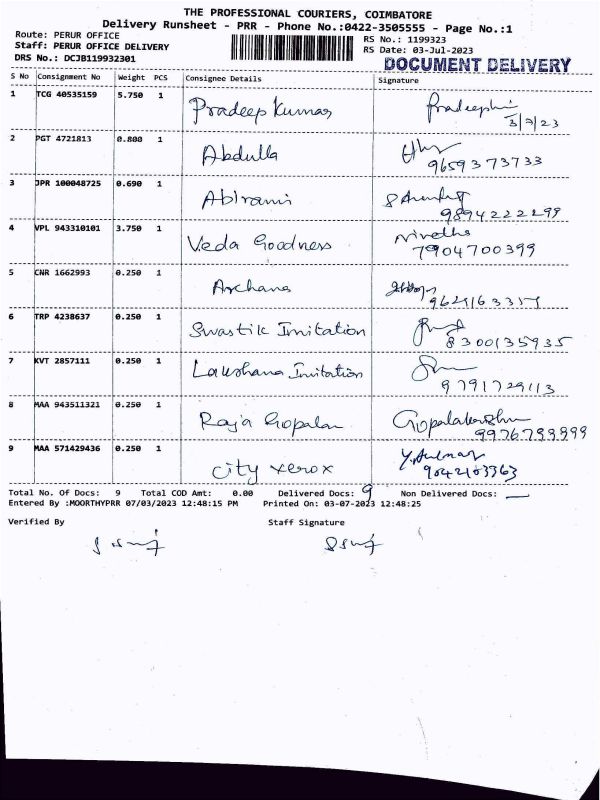 THE PROFESSIONAL COURIERS, COIMBATORE
Delivery Runsheet - PRR - Phone No.:0422-3505555 - Page No.:1
Route: PERUR OFFICE
Staff: PERUR OFFICE DELIVERY
DRS No.: DCJB119932301
RS No.: 1199323
RS Date: 03-Jul-2023
DOCUMENT DELIVERY
S No Consignment No Weight PCS Consignee Details Signature
1 TCG 40535159 5.750 1 Pradeep Kumar
3/7/23
2 PGT 4721813 0.800 1 Abdulla
9659373733
3 JPR 100048725 0.690 1 Abirami
9894222299
4 VPL 943310101 3.750 1 Veda Goodness Nivetha
7904700399
5 CNR 1662993 0.250 1 Archana
6 TRP 4238637 0.250 1 Swastik Imitation
8300135935
7 KVT 2857111 0.250 1 Lakshana Imitation
9791729113
8 MAA 943511321 0.250 1 Raja Gopalan
9976799999
9 MAA 571429436 0.250 1 City xerox
9042103363
Total No. Of Docs: 9 Total COD Amt: 0.00 Delivered Docs: 9 Non Delivered Docs: —
Entered By :MOORTHYPRR 07/03/2023 12:48:15 PM Printed On: 03-07-2023 12:48:25
Verified By Staff Signature